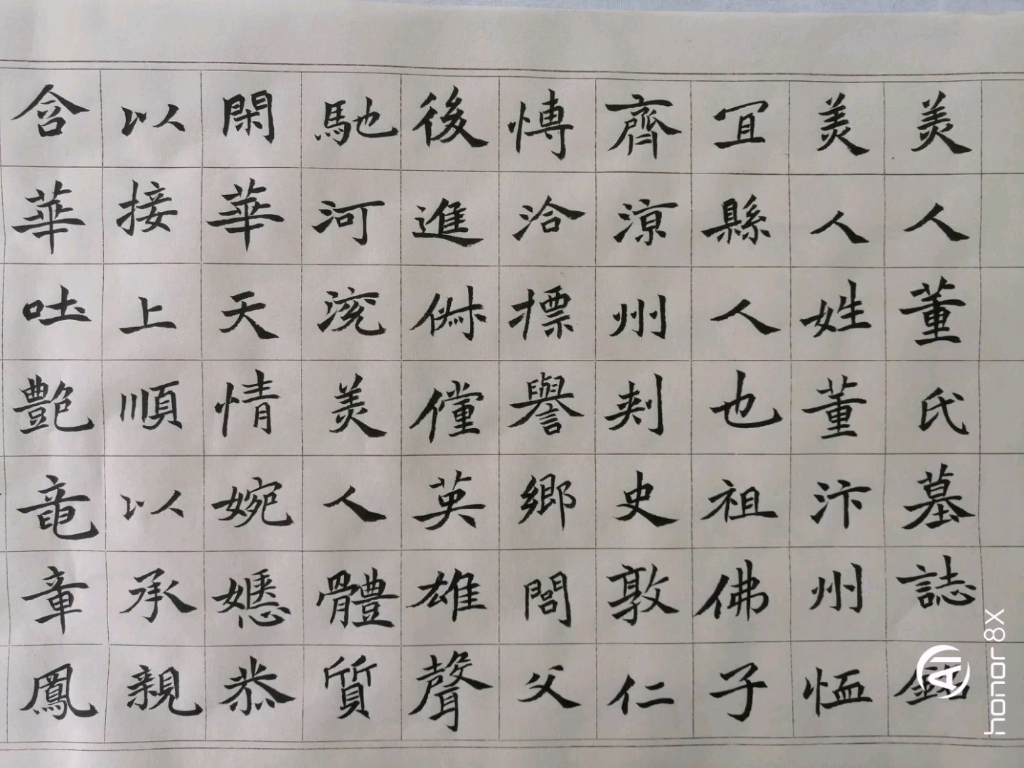 美人董氏墓誌銘
美人姓董汴州恤
宜縣人也祖佛子
齊涼州刾史敦仁
愽洽摽譽鄉閭父
後進俶儻英雄聲
馳河渷美人體質
閑華天情婉嫕恭
以接上順以承親
含華吐艷竜章鳳
honor 8X